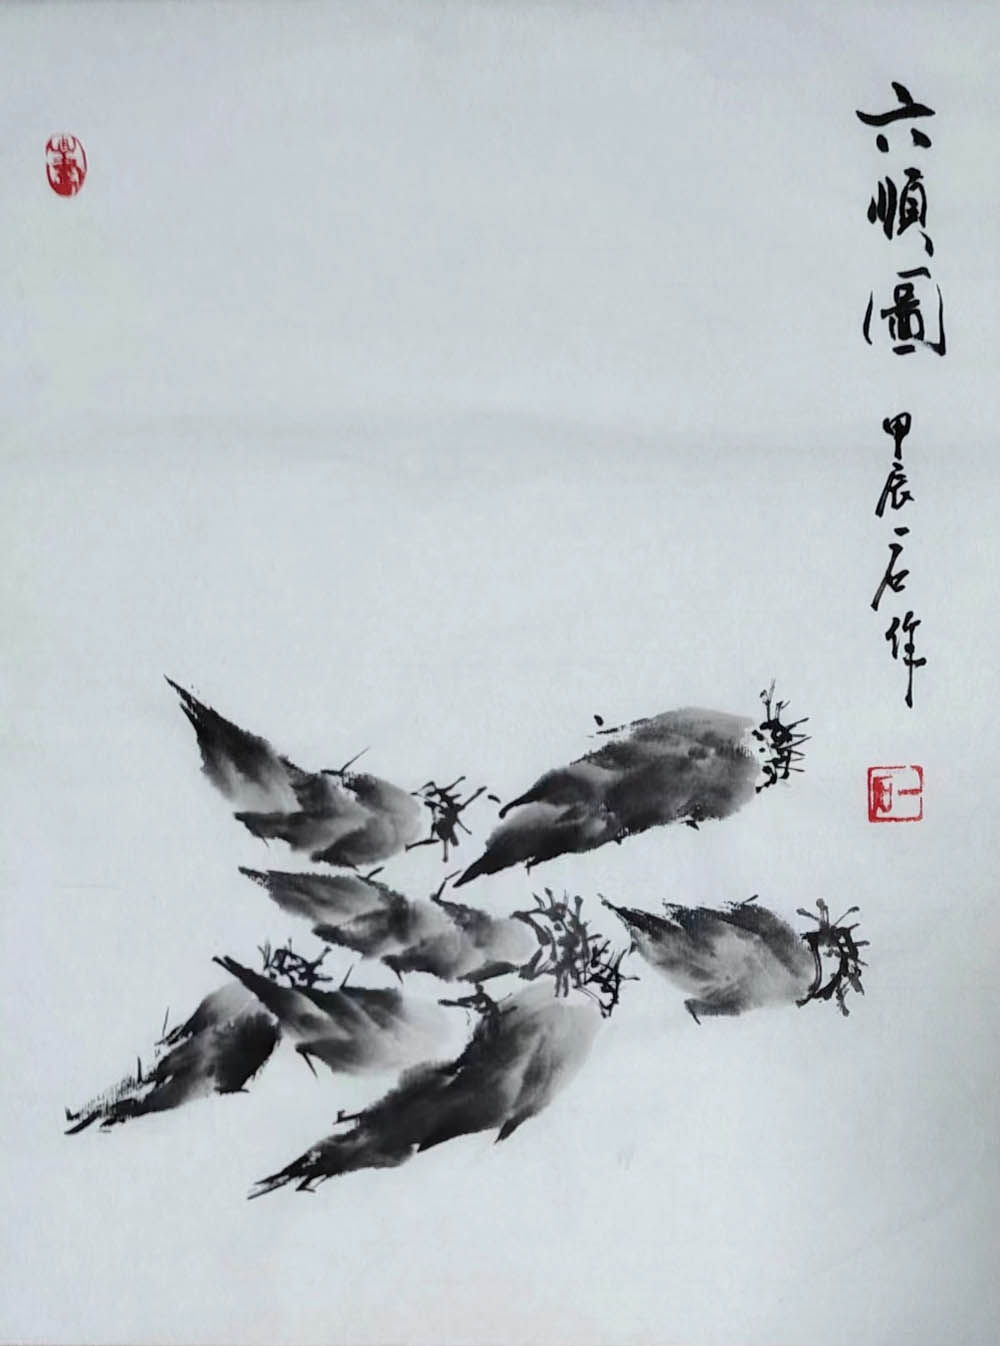 六順圖
甲辰一石作